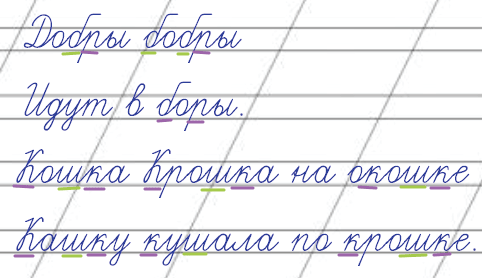 Добры бобры
Идут в боры.
Кошка Крошка на окошке
Кашку кушала по крошке.